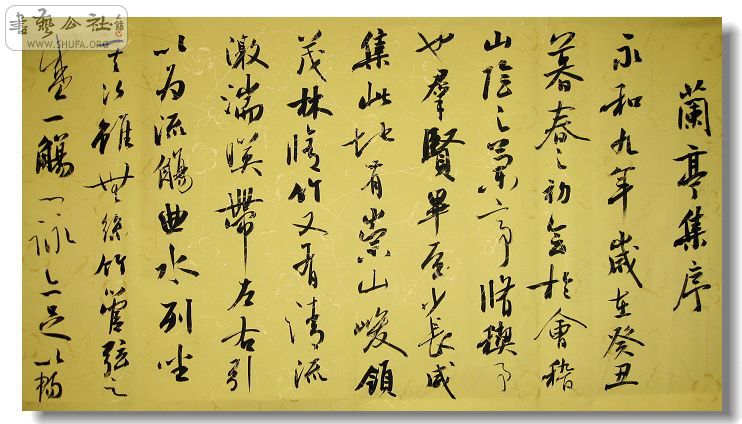 蘭亭集序
永和九年歲在癸丑
暮春之初会於會稽
山陰之蘭亭脩禊事
也羣賢畢至少長咸
集此地有崇山峻領
茂林脩竹又有清流
激湍暎帶左右引
以为流觴曲水列坐
其次雖無絲竹管弦之
盛一觴一詠亦足以暢
書藝公社
www.SHUFA.ORG